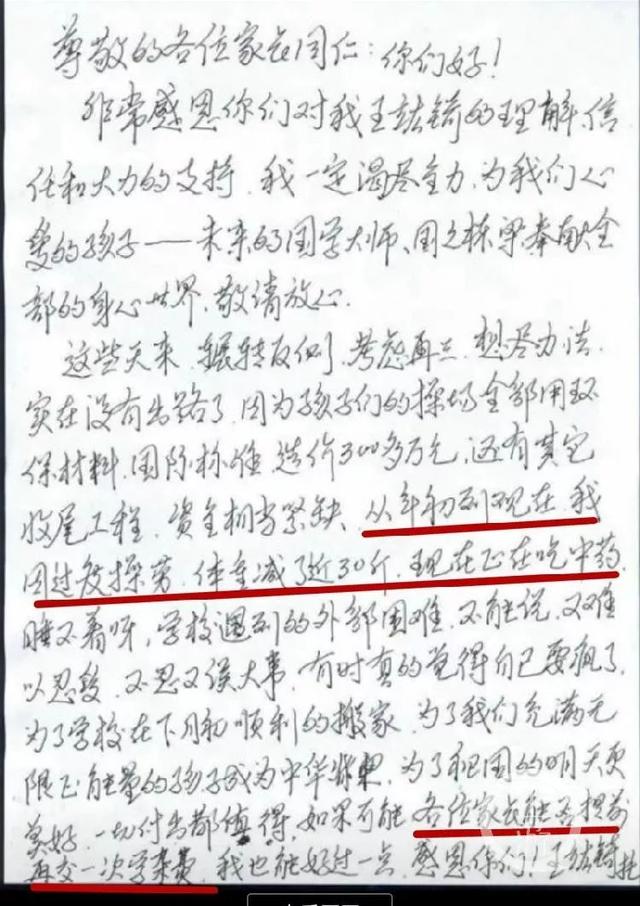 尊敬的各位家长同仁：你们好！
非常感恩你们对我王鋕锜的理解、信
任和大力的支持，我一定竭尽全力，为我们心
爱的孩子——未来的国学大师、国之栋梁奉献全
部的身心世界，敬请放心。
这些天来，辗转反侧，考虑再三，想尽办法，
实在没有出路了，因为孩子们的操场全部用环
保材料，国际标准，造价300多万元，还有其它
收尾工程，资金相当紧缺，从年初到现在，我
因过度操劳，体重减了近30斤，现在正在吃中药，
睡不着呀，学校遇到的外部困难，不能说，又难
以忍受，不忍又误大事，有时真的觉得自己要疯了，
为了学校在下月初顺利的搬家，为了我们充满无
限正能量的孩子成为中华栋梁，为了祖国的明天更
美好，一切付出都值得，如果可能，各位家长能否提前
再交一次学杂费，我也能好过一点，感恩你们！王鋕锜